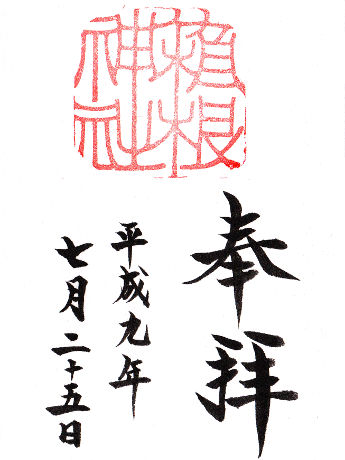 箱根
神社
奉拝
平成九年
七月二十五日